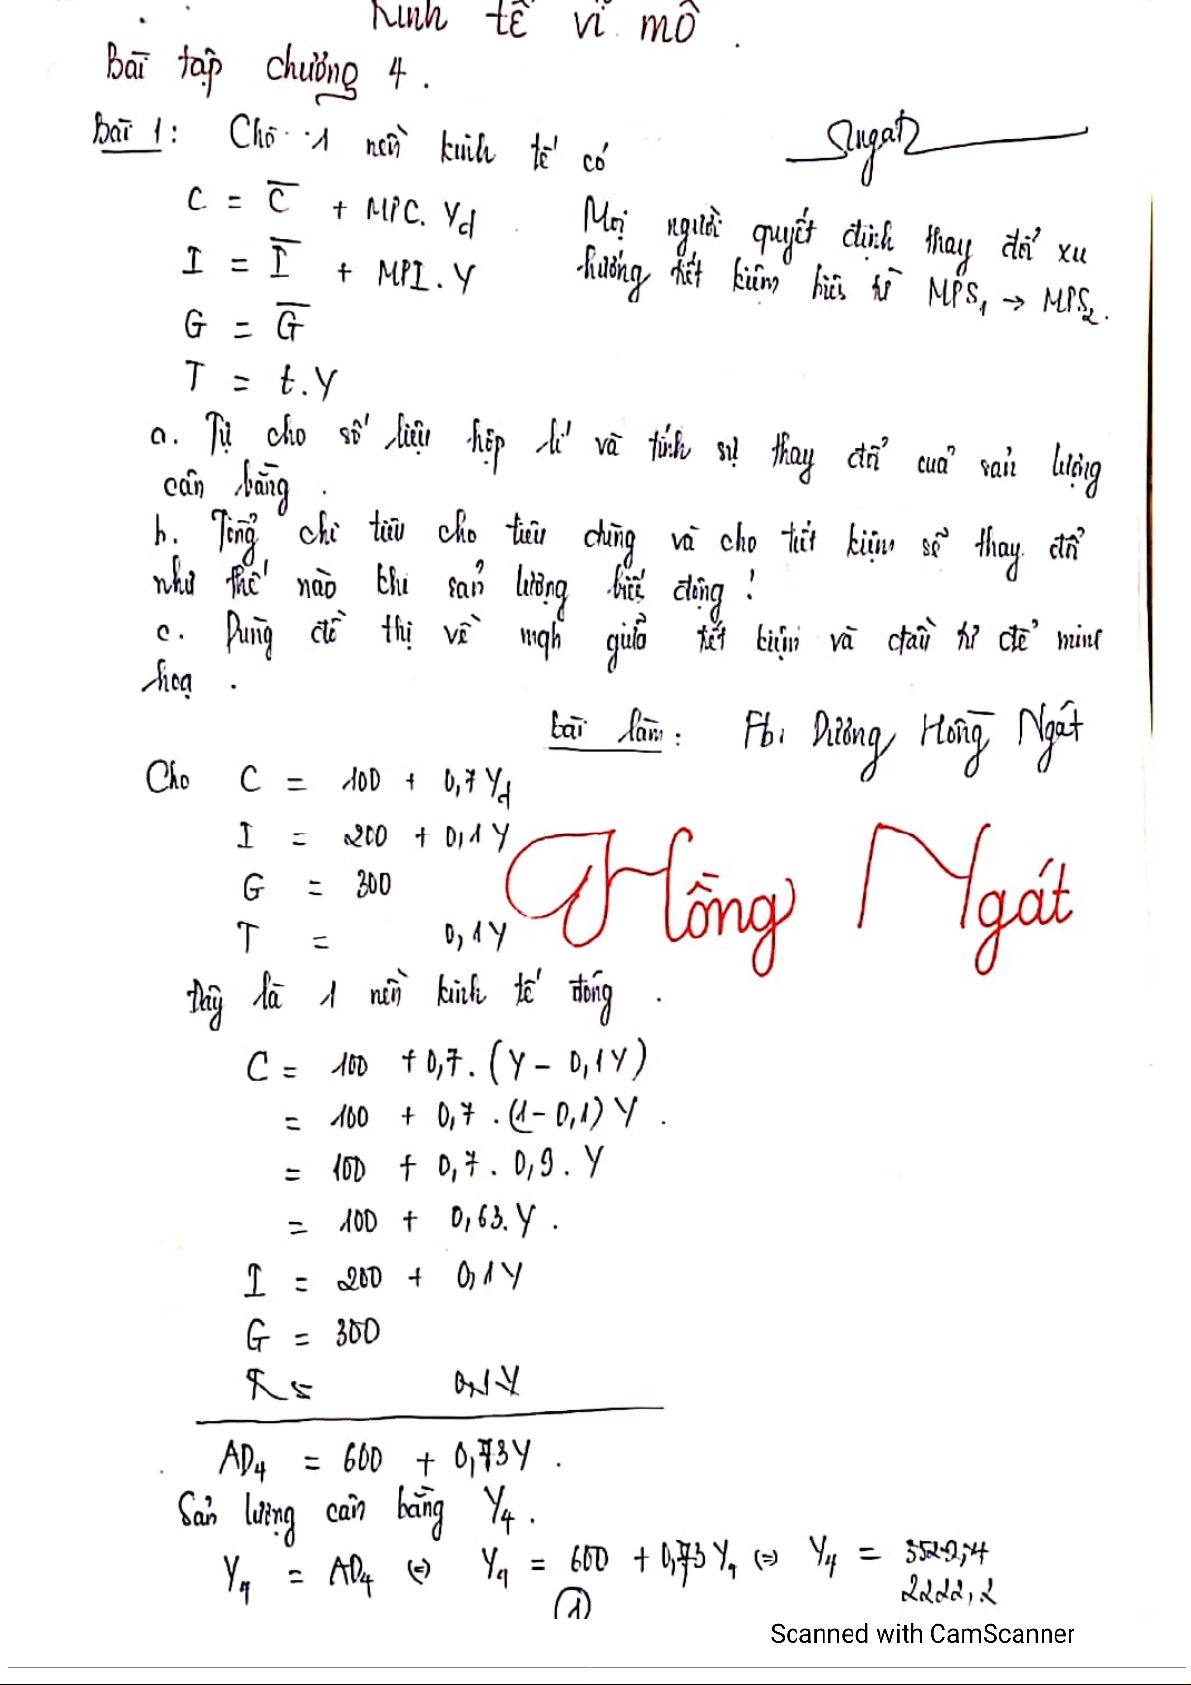 Kinh tế vĩ mô.
Bài tập chương 4.
Bài 1: Cho 1 nền kinh tế có
C = C̅ + MPC. Yd
I = I̅ + MPI. Y
G = G̅
T = t.Y
Mọi người quyết định thay đổi xu
hướng tiết kiệm biên từ MPS1 → MPS2.
a. Tự cho số liệu hợp lí và tính sự thay đổi của sản lượng
cân bằng.
b. Tổng chi tiêu cho tiêu dùng và cho tiết kiệm sẽ thay đổi
như thế nào khi sản lượng biến động!
c. Dùng đồ thị về mqh giữa tiết kiệm và đầu tư để minh
hoạ.
bài làm: Fb: Dương Hồng Ngát
Cho C = 100 + 0,7Yd
I = 200 + 0,1Y
G = 300
T = 0,1Y
Hồng Ngát
Đây là 1 nền kinh tế đóng.
C = 100 + 0,7. (Y - 0,1Y)
= 100 + 0,7. (1-0,1)Y.
= 100 + 0,7. 0,9. Y
= 100 + 0,63.Y.
I = 200 + 0,1Y
G = 300
T = 0,1Y
AD4 = 600 + 0,73Y.
Sản lượng cân bằng Y4.
Y4 = AD4 (=) Y4 = 600 + 0,73Y4 (=) Y4 =
2222,2
(1)
Scanned with CamScanner